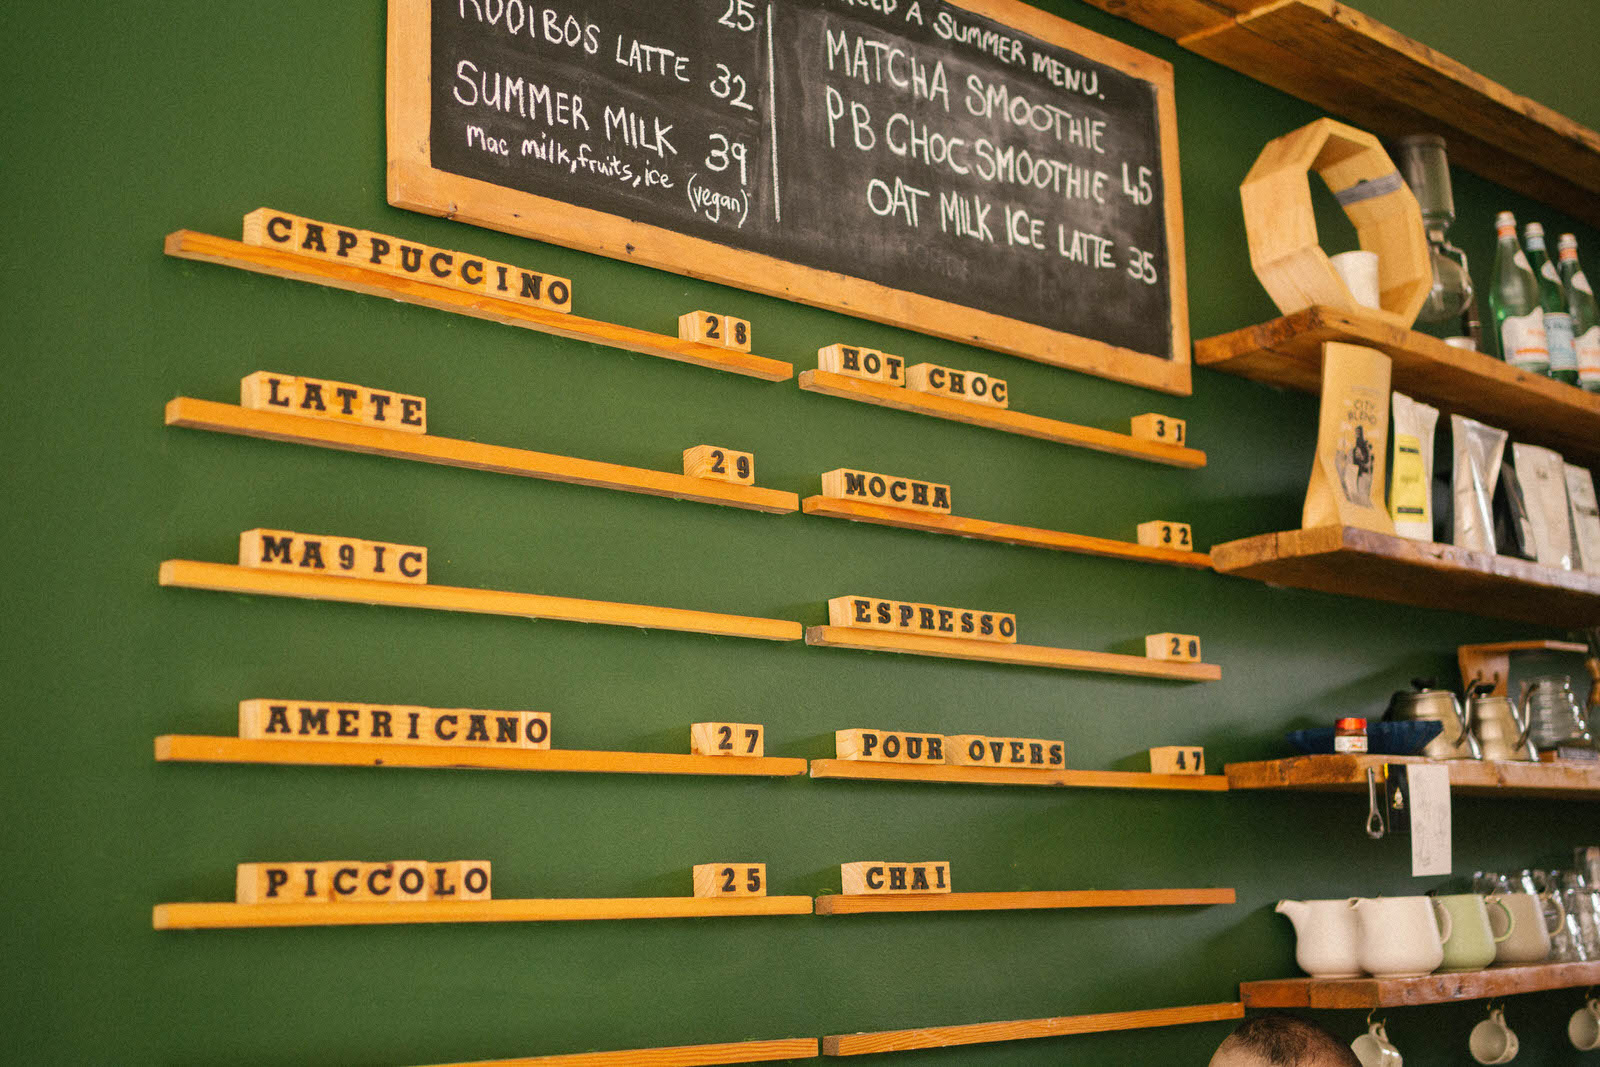 25
ROOIBOS LATTE 32
SUMMER MILK 39
Mac milk, fruits, ice (vegan)
A SUMMER MENU.
MATCHA SMOOTHIE
PB CHOC SMOOTHIE 45
OAT MILK ICE LATTE 35
CAPPUCCINO 28
LATTE 29
MA9IC
AMERICANO 27
PICCOLO 25
HOT CHOC 31
MOCHA 32
ESPRESSO 20
POUR OVERS 47
CHAI
CITY
BLEND